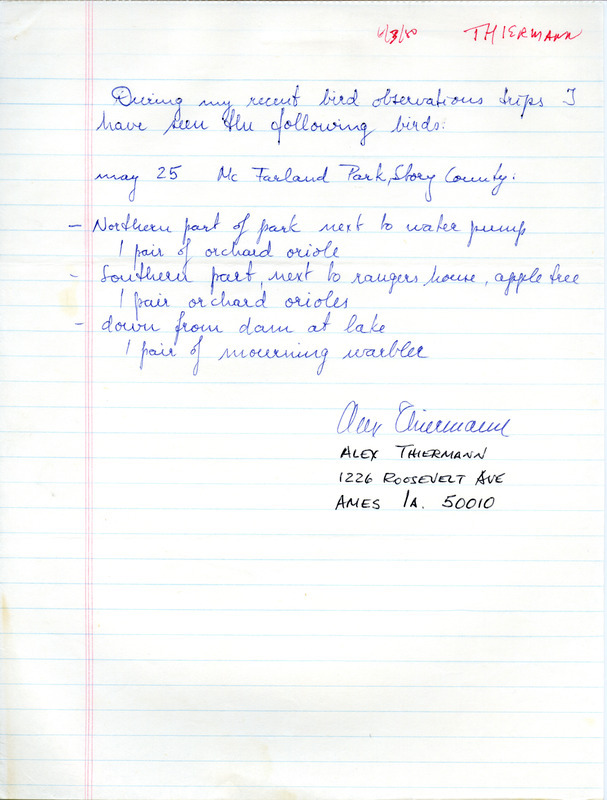 6/3/80 THIERMANN
During my recent bird observations trips I
have seen the following birds:
may 25 Mc Farland Park, Story County:
- Northern part of park next to water pump
1 pair of orchard oriole
- Southern part, next to rangers house, apple tree
1 pair orchard orioles
- down from dam at lake
1 pair of mourning warbler
Alex Thiermann
ALEX THIERMANN
1226 ROOSEVELT AVE
AMES IA. 50010